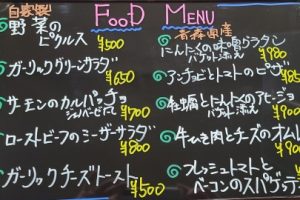 FOOD MENU
自家製
野菜の
ピクルス ¥500
ガーリックグリーンサラダ
¥650
サーモンのカルパッチョ
¥700
ローストビーフのシーザーサラダ
¥800
ガーリックチーズトースト
¥500
青森県産
にんにくの味噌グラタン
バゲット添え ¥980
アンチョビとトマトのピザ
牡蠣とにんにくのアヒージョ
バゲット添え
牛ひき肉とチーズのオム
フレッシュトマトと
ベーコンのスパゲッティ